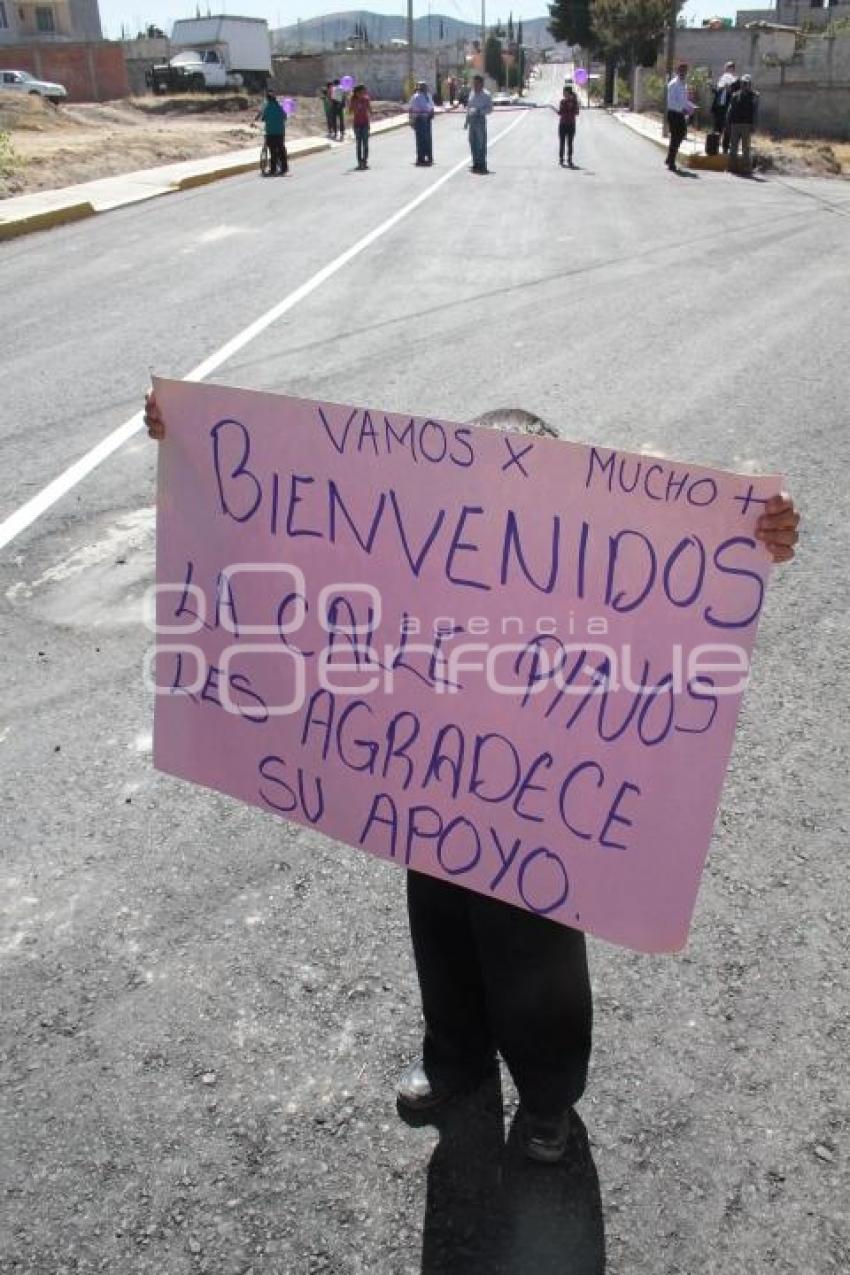 VAMOS X MUCHO +
BIENVENIDOS
LA CALLE PINOS
LES AGRADECE
SU APOYO.
agencia
enfoque